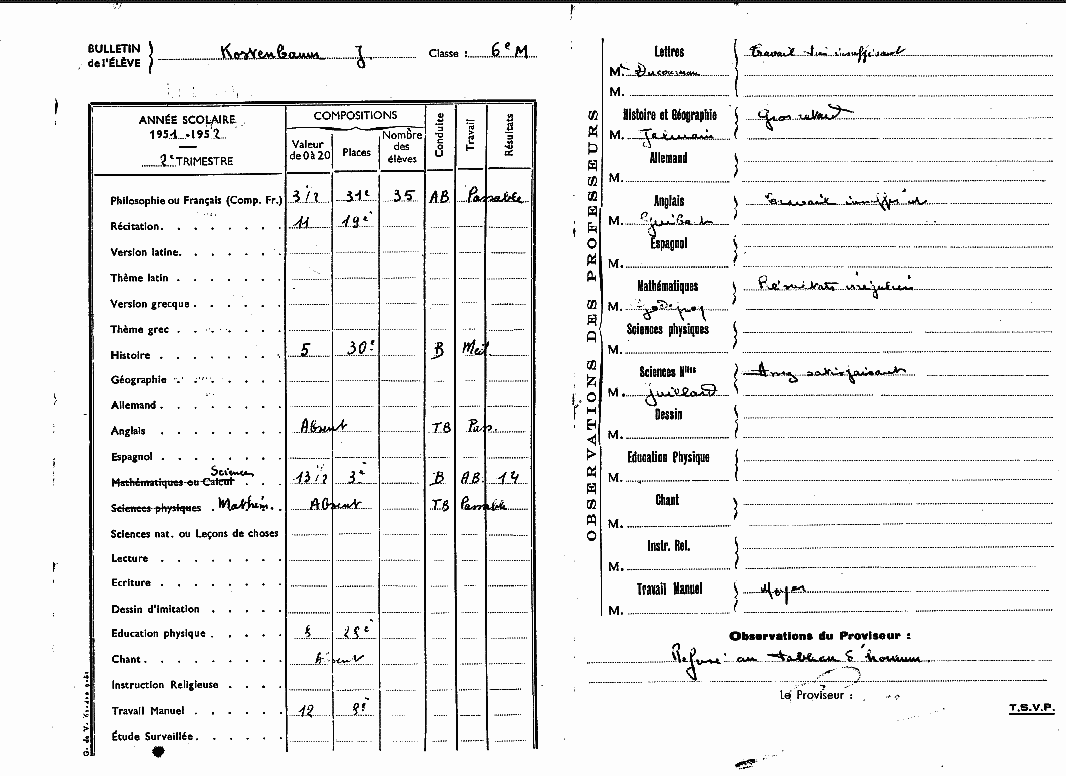 BULLETIN de l'ÉLÈVE } Kostenbaum J. Classe : 6e M
ANNÉE SCOLAIRE
1951-1952
2e TRIMESTRE
COMPOSITIONS
Valeur de 0 à 20
Places
Nombre des élèves
Conduite
Travail
Résultats
Philosophie ou Français (Comp. Fr.) 3 1/2 31e 35 AB Passable
Récitation. 11 19e
Version latine.
Thème latin
Version grecque
Thème grec
Histoire 5 30e B Med
Géographie
Allemand.
Anglais Absent TB Pas.
Espagnol
Sciences
Mathématiques ou Calcul 13 1/2 3e B AB 14
Sciences physiques Mathém. Absent TB Passable
Sciences nat. ou Leçons de choses
Lecture
Ecriture
Dessin d'Imitation
Education physique 8 25e
Chant. Absent
Instruction Religieuse
Travail Manuel 12 8e
Étude Surveillée.
OBSERVATIONS DES PROFESSEURS
Lettres } Travail très insuffisant
M.
M.
Histoire et Géographie } Gros retard
M.
Allemand
M.
Anglais } Travail insuffisant
M.
Espagnol
M.
Mathématiques } Résultats irréguliers
M. Godefroy
Sciences physiques
M.
Sciences Nlles } Assez satisfaisant
M. Juillard
Dessin
M.
Education Physique
M.
Chant
M.
Instr. Rel.
M.
Travail Manuel } Moyen
M.
Observations du Proviseur :
Refusé au tableau d'honneur.
Le Proviseur :
T.S.V.P.